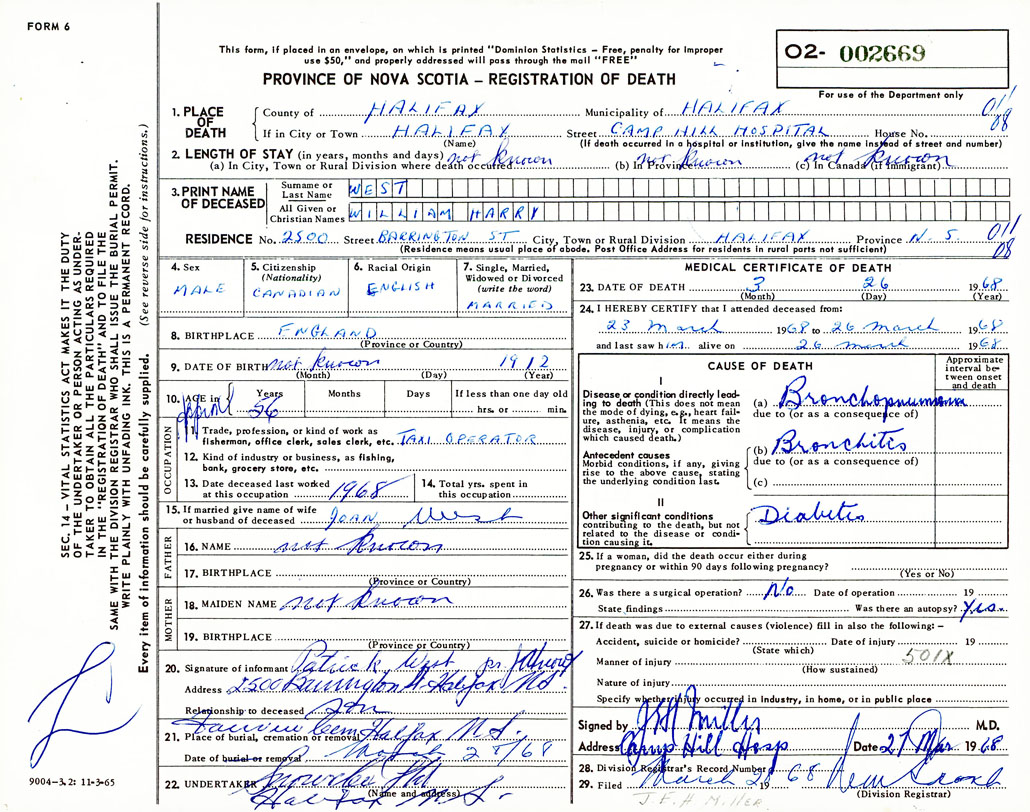 FORM 6
This form, if placed in an envelope, on which is printed "Dominion Statistics – Free, penalty for improper
use $50," and properly addressed will pass through the mail "FREE"
PROVINCE OF NOVA SCOTIA – REGISTRATION OF DEATH
O2- 002669
For use of the Department only
1. PLACE OF DEATH
County of HALIFAX Municipality of HALIFAX 011
If in City or Town HALIFAX Street CAMP HILL HOSPITAL House No. 08
(Name) (If death occurred in a hospital or institution, give the name instead of street and number)
2. LENGTH OF STAY (in years, months and days)
(a) In City, Town or Rural Division where death occurred not known (b) In Province not known (c) In Canada (if immigrant) not known
3. PRINT NAME OF DECEASED
Surname or Last Name WEST
All Given or Christian Names WILLIAM HARRY
RESIDENCE No. 2500 Street BARRINGTON ST City, Town or Rural Division HALIFAX Province N. S. 011
(Residence means usual place of abode. Post Office Address for residents in rural parts not sufficient) 08
SEC. 14 – VITAL STATISTICS ACT MAKES IT THE DUTY
OF THE UNDERTAKER OR PERSON ACTING AS UNDER-
TAKER TO OBTAIN ALL THE PARTICULARS REQUIRED
IN THE "REGISTRATION OF DEATH" AND TO FILE THE
SAME WITH THE DIVISION REGISTRAR WHO SHALL ISSUE THE BURIAL PERMIT.
WRITE PLAINLY WITH UNFADING INK. THIS IS A PERMANENT RECORD.
Every item of information should be carefully supplied. (See reverse side for instructions.)
4. Sex
MALE
5. Citizenship
(Nationality)
CANADIAN
6. Racial Origin
ENGLISH
7. Single, Married,
Widowed or Divorced
(write the word)
MARRIED
8. BIRTHPLACE ENGLAND
(Province or Country)
9. DATE OF BIRTH not known 1912
(Month) (Day) (Year)
10. AGE in Years Months Days If less than one day old
56 hrs. or min.
OCCUPATION
11. Trade, profession, or kind of work as
fisherman, office clerk, sales clerk, etc. TAXI OPERATOR
12. Kind of industry or business, as fishing,
bank, grocery store, etc.
13. Date deceased last worked
at this occupation 1968
14. Total yrs. spent in
this occupation
15. If married give name of wife
or husband of deceased JOAN West
FATHER
16. NAME not known
17. BIRTHPLACE
(Province or Country)
MOTHER
18. MAIDEN NAME not known
19. BIRTHPLACE
(Province or Country)
20. Signature of informant Patrick West
Address 2500 Barrington St Halifax N.S.
Relationship to deceased son
21. Place of burial, cremation or removal Fairview Cem Halifax N.S.
Date of burial or removal March 28/68
22. UNDERTAKER Snow
(Name and address)
Halifax N.S.
9004–3.2: 11-3-65
MEDICAL CERTIFICATE OF DEATH
23. DATE OF DEATH 3 26 1968
(Month) (Day) (Year)
24. I HEREBY CERTIFY that I attended deceased from:
23 March 1968 to 26 March 1968
and last saw him alive on 26 March 1968
CAUSE OF DEATH
Approximate
interval be-
tween onset
and death
I
Disease or condition directly lead-
ing to death (This does not mean
the mode of dying, e.g., heart fail-
ure, asthenia, etc. It means the
disease, injury, or complication
which caused death.)
(a) Bronchopneumonia
due to (or as a consequence of)
Antecedent causes
Morbid conditions, if any, giving
rise to the above cause, stating
the underlying condition last.
(b) Bronchitis
due to (or as a consequence of)
(c)
II
Other significant conditions
contributing to the death, but not
related to the disease or condi-
tion causing it.
Diabetis
25. If a woman, did the death occur either during
pregnancy or within 90 days following pregnancy?
(Yes or No)
26. Was there a surgical operation? No Date of operation 19
State findings Was there an autopsy? Yes
27. If death was due to external causes (violence) fill in also the following: –
Accident, suicide or homicide? Date of injury 19
(State which) 501X
Manner of injury
(How sustained)
Nature of injury
Specify whether injury occurred in Industry, in home, or in public place
Signed by Miller M.D.
Address Camp Hill Hosp Date 27 Mar 1968
28. Division Registrar's Record Number
29. Filed March 1968
(Division Registrar)
J. F. H MILLER